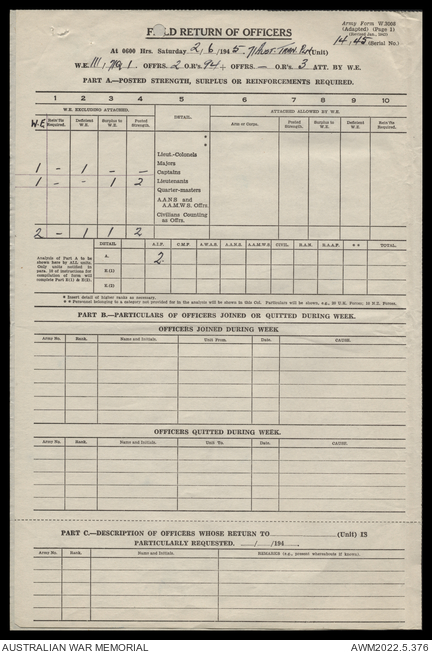 Army Form W.3008
(Adapted) (Page 1)
F LD RETURN OF OFFICERS
14/45 (Serial No.)
At 0600 Hrs. Saturday 2/6/1945. (Unit)
W.E. OFFRS. 2 O.R's. 94 OFFRS. — O.R's 3 ATT. BY W.E.
PART A.—POSTED STRENGTH, SURPLUS OR REINFORCEMENTS REQUIRED.
1 2 3 4 5 6 7 8 9 10
W.E. EXCLUDING ATTACHED. ATTACHED ALLOWED BY W.E.
W.E. Rein'fts Required. Deficient W.E. Surplus to W.E. Posted Strength. DETAIL. Arts or Corps. Posted Strength. Surplus to W.E. Deficient W.E. Rein'fts Required.
*
*
Lieut.-Colonels
Majors
1 – 1 – – Captains
1 – – 1 2 Lieutenants
Quarter-masters
A.A.N.S and A.A.M.W.S. Offrs.
Civilians Counting as Offrs.
2 – 1 1 2
DETAIL A.I.F. C.M.F. A.W.A.S. A.A.N.S. A.A.M.W.S. CIVIL. R.A.N. R.A.A.F. * * TOTAL.
Analysis of Part A to be shown here by ALL units. Only units notified in para. 10 of instructions for compilation of form will complete Part E(1) & E(2).
A. 2
E.(1)
E.(2)
* Insert detail of higher ranks as necessary.
* * Personnel belonging to a category not provided for in the analysis will be shown in this Col. Particulars will be shown, e.g., 20 U.K. Forces; 10 N.Z. Forces.
PART B.—PARTICULARS OF OFFICERS JOINED OR QUITTED DURING WEEK.
OFFICERS JOINED DURING WEEK
Army No. Rank. Name and Initials. Unit From. Date. CAUSE.
OFFICERS QUITTED DURING WEEK.
Army No. Rank. Name and Initials. Unit To. Date. CAUSE.
PART C.—DESCRIPTION OF OFFICERS WHOSE RETURN TO (Unit) IS
PARTICULARLY REQUESTED. / /194 .
Army No. Rank. Name and Initials. REMARKS (e.g., present whereabouts if known).
AUSTRALIAN WAR MEMORIAL AWM2022.5.376